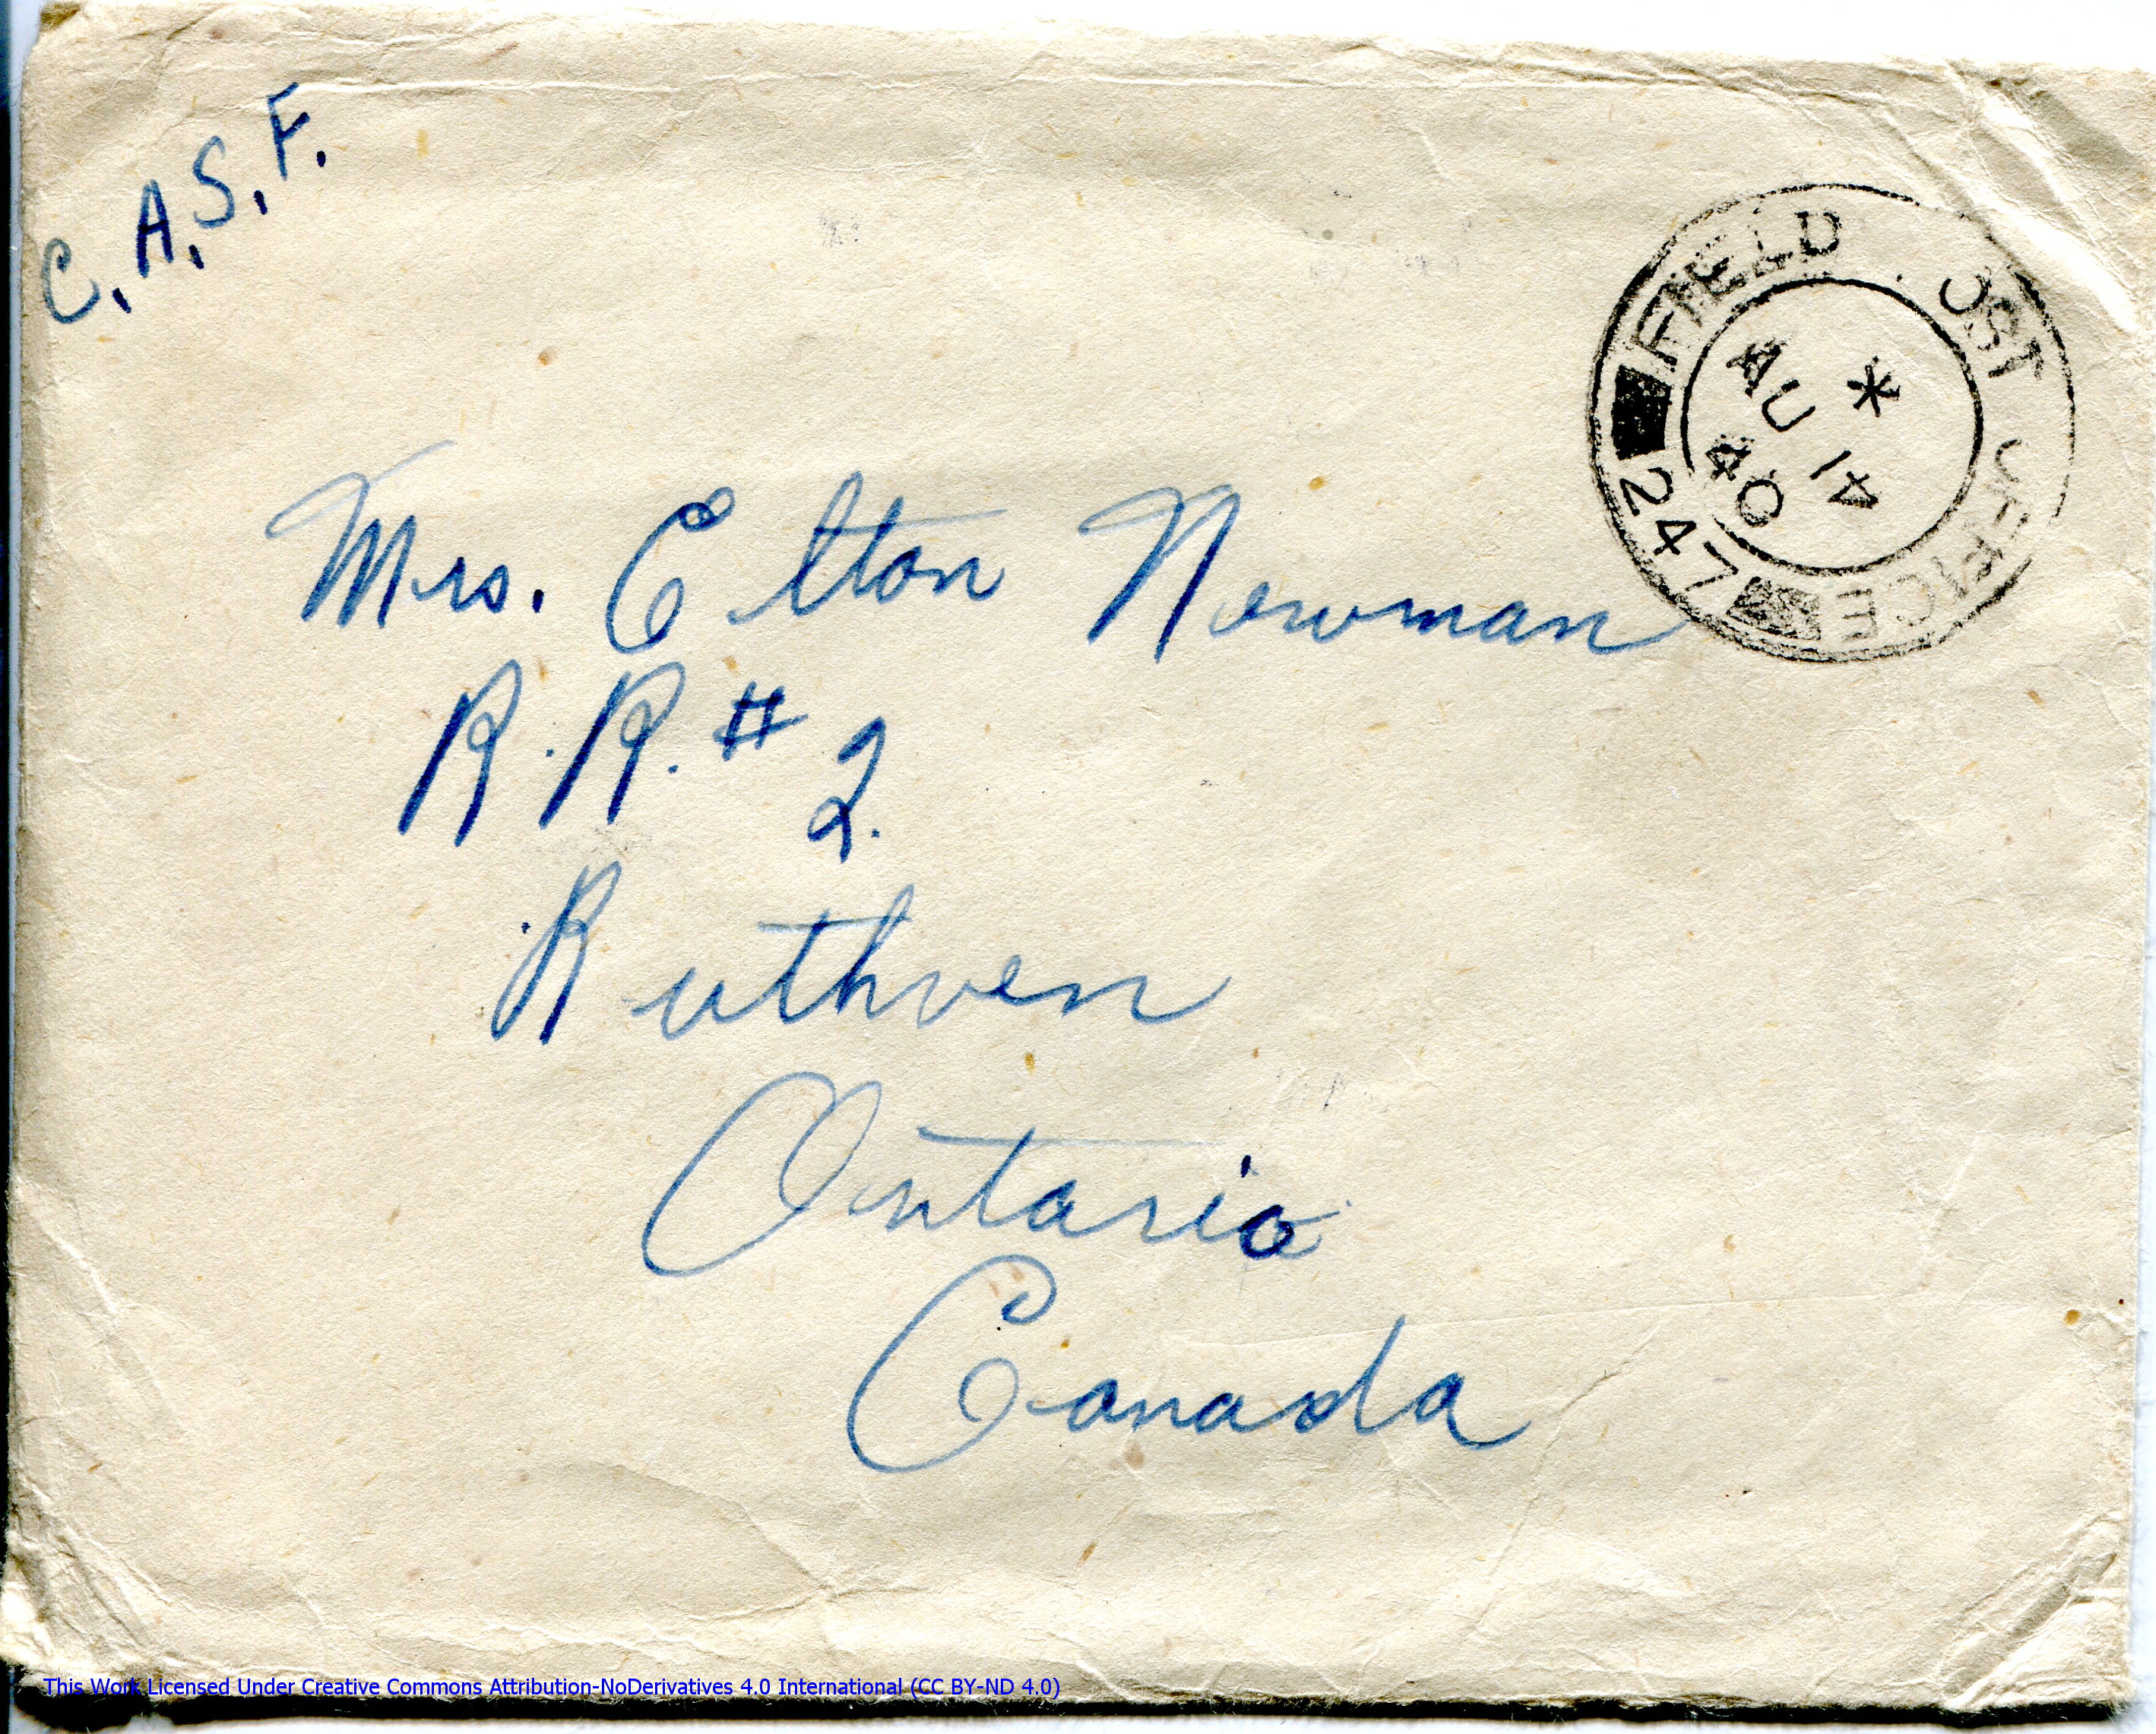 C.A.S.F.
FIELD POST OFFICE
247
*
AU 14
40
Mrs. Elton Newman
R.R. # 2.
Ruthven
Ontario
Canada
This Work Licensed Under Creative Commons Attribution-NoDerivatives 4.0 International (CC BY-ND 4.0)